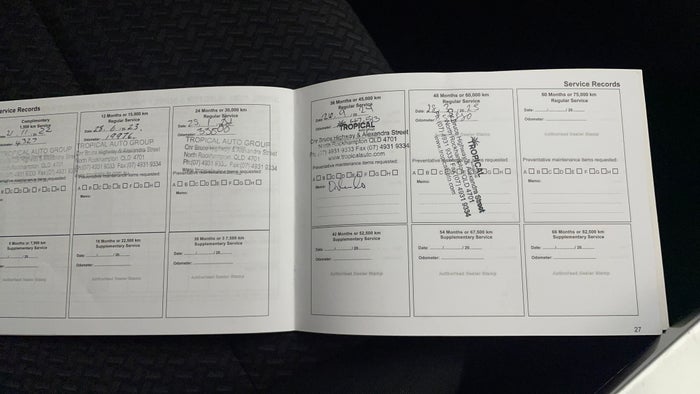 Service Records
Complimentary
1,500 km Service
TROPICAL AUTO GROUP
Cnr Bruce Highway & Alexandra Street
Memo:
Months or 7,500 km
Supplementary Service
Date: / / 20
Odometer:
Authorised Dealer Stamp
12 Months or 15,000 km
Regular Service
TROPICAL AUTO GROUP
Cnr Bruce Highway & Alexandra Street
North Rockhampton QLD 4701
Ph:(07) 4931 9333 Fax:(07) 4931 9334
Preventative maintenance items requested:
A B C D E F G H
Memo:
18 Months or 22,500 km
Supplementary Service
Date: / / 20
Odometer:
Authorised Dealer Stamp
24 Months or 30,000 km
Regular Service
Date: 23
Odometer: 33500
TROPICAL AUTO GROUP
Cnr Bruce Highway & Alexandra Street
North Rockhampton QLD 4701
Ph:(07) 4931 9333 Fax:(07) 4931 9334
www.tropicalauto.com
Preventative maintenance items requested:
A B C D E F G H
Memo:
Supplementary Service
Date: / / 20
Odometer:
Authorised Dealer Stamp
Service Records
36 Months or 45,000 km
Regular Service
TROPICAL
Cnr Bruce Highway & Alexandra Street
North Rockhampton QLD 4701
Ph: (07) 4931 9333 Fax (07) 4931 9334
www.tropicalauto.com
Preventative maintenance items requested:
A B C D E F G H
Memo:
42 Months or 52,500 km
Supplementary Service
Date: / / 20
Odometer:
Authorised Dealer Stamp
48 Months or 60,000 km
Regular Service
TROPICAL
Preventative requested:
Memo:
54 Months or 67,500 km
Supplementary Service
Date: / / 20
Odometer:
Authorised Dealer Stamp
60 Months or 75,000 km
Regular Service
Date: / / 20
Odometer:
Authorised Dealer Stamp
Preventative maintenance items requested:
A B C D E F G H
Memo:
66 Months or 82,500 km
Supplementary Service
Date: / / 20
Odometer:
Authorised Dealer Stamp
27